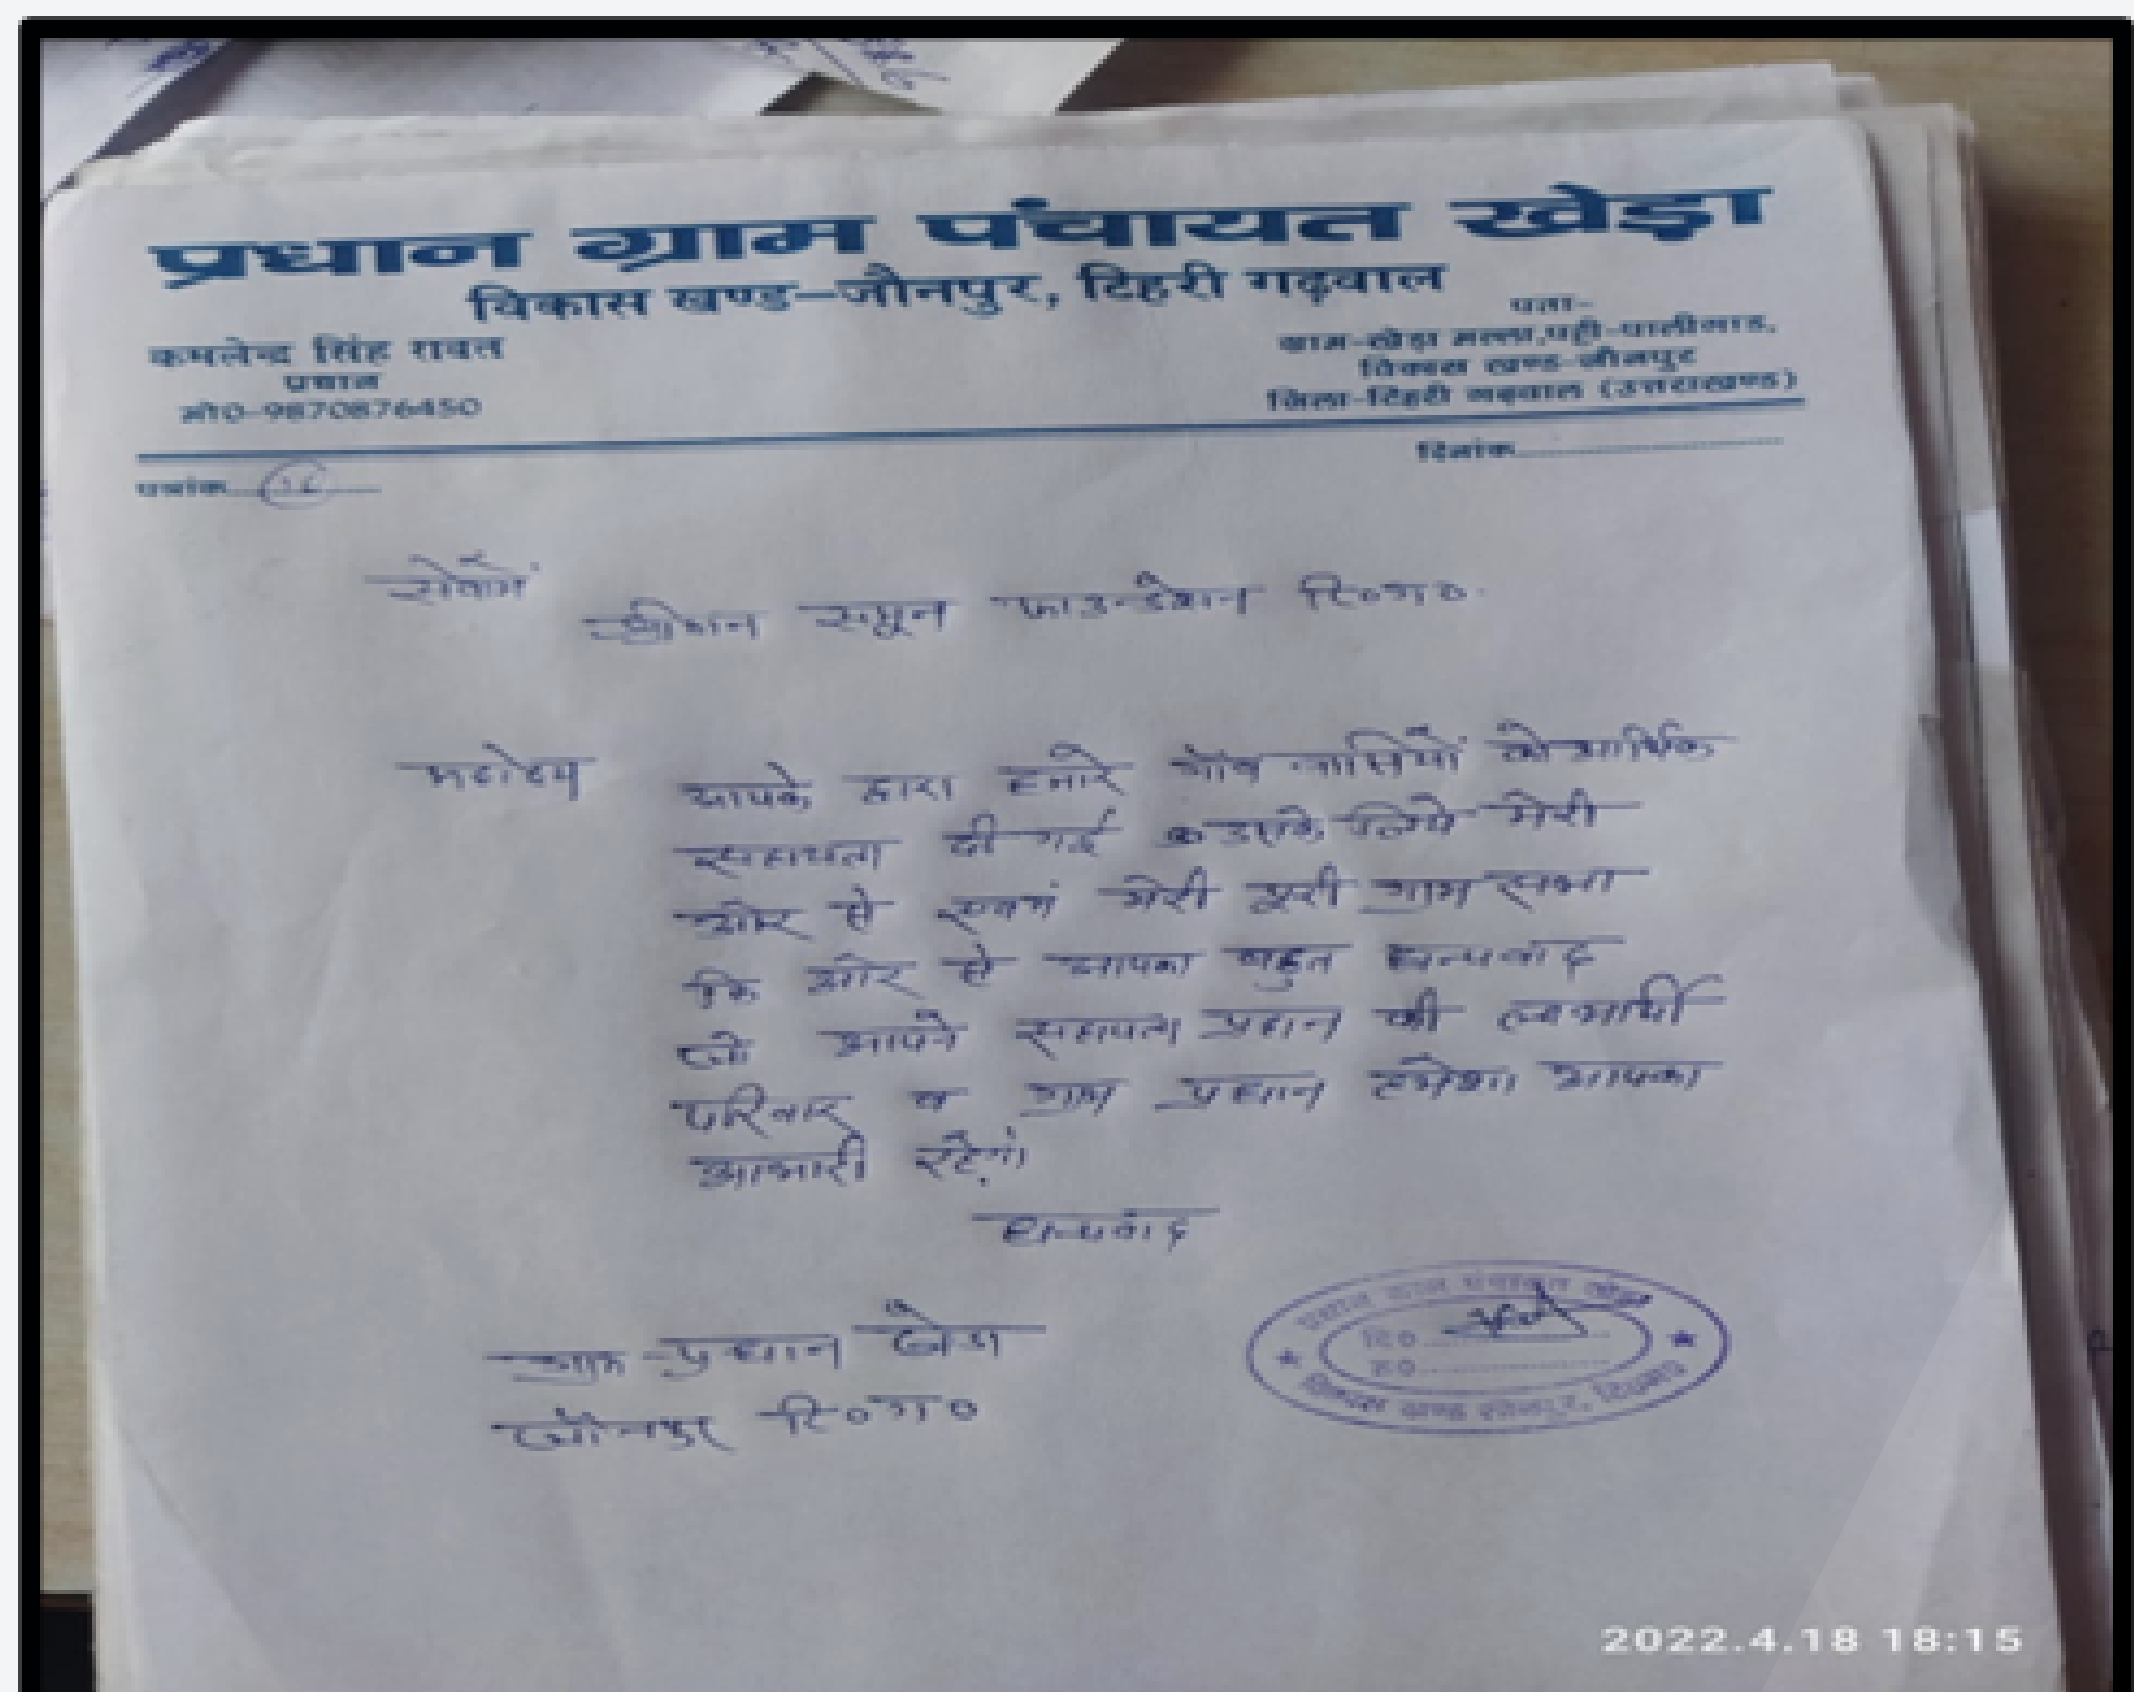 प्रधान ग्राम पंचायत खेड़ा
विकास खण्ड–जौनपुर, टिहरी गढ़वाल
कमलेन्द्र सिंह रावत
प्रधान
मो0-9870876450
पता-
ग्राम-खेड़ा मल्ला,पट्टी-पालीगाड,
विकास खण्ड-जौनपुर
जिला-टिहरी गढ़वाल (उत्तराखण्ड)
दिनांक
पत्रांक 16
सेवामें
फाउन्डेशन टि०ग०
महोदय
आपके द्वारा हमारे गाँव वासियों को आर्थिक
सहायता दी गई उसके लिये मेरी
ओर से एवमं मेरी पूरी ग्राम सभा
कि ओर से आपका बहुत धन्यवाद
जो आपने सहायता प्रदान की लाभार्थी
परिवार व ग्राम प्रधान हमेशा आपका
आभारी रहेगें।
धन्यवाद
ग्राम-प्रधान खेडा
जौनपुर टि०ग०
प्रधान ग्राम पंचायत खेड़ा
दि0
ह0
विकास खण्ड जौनपुर, टि0ग0
2022.4.18 18:15